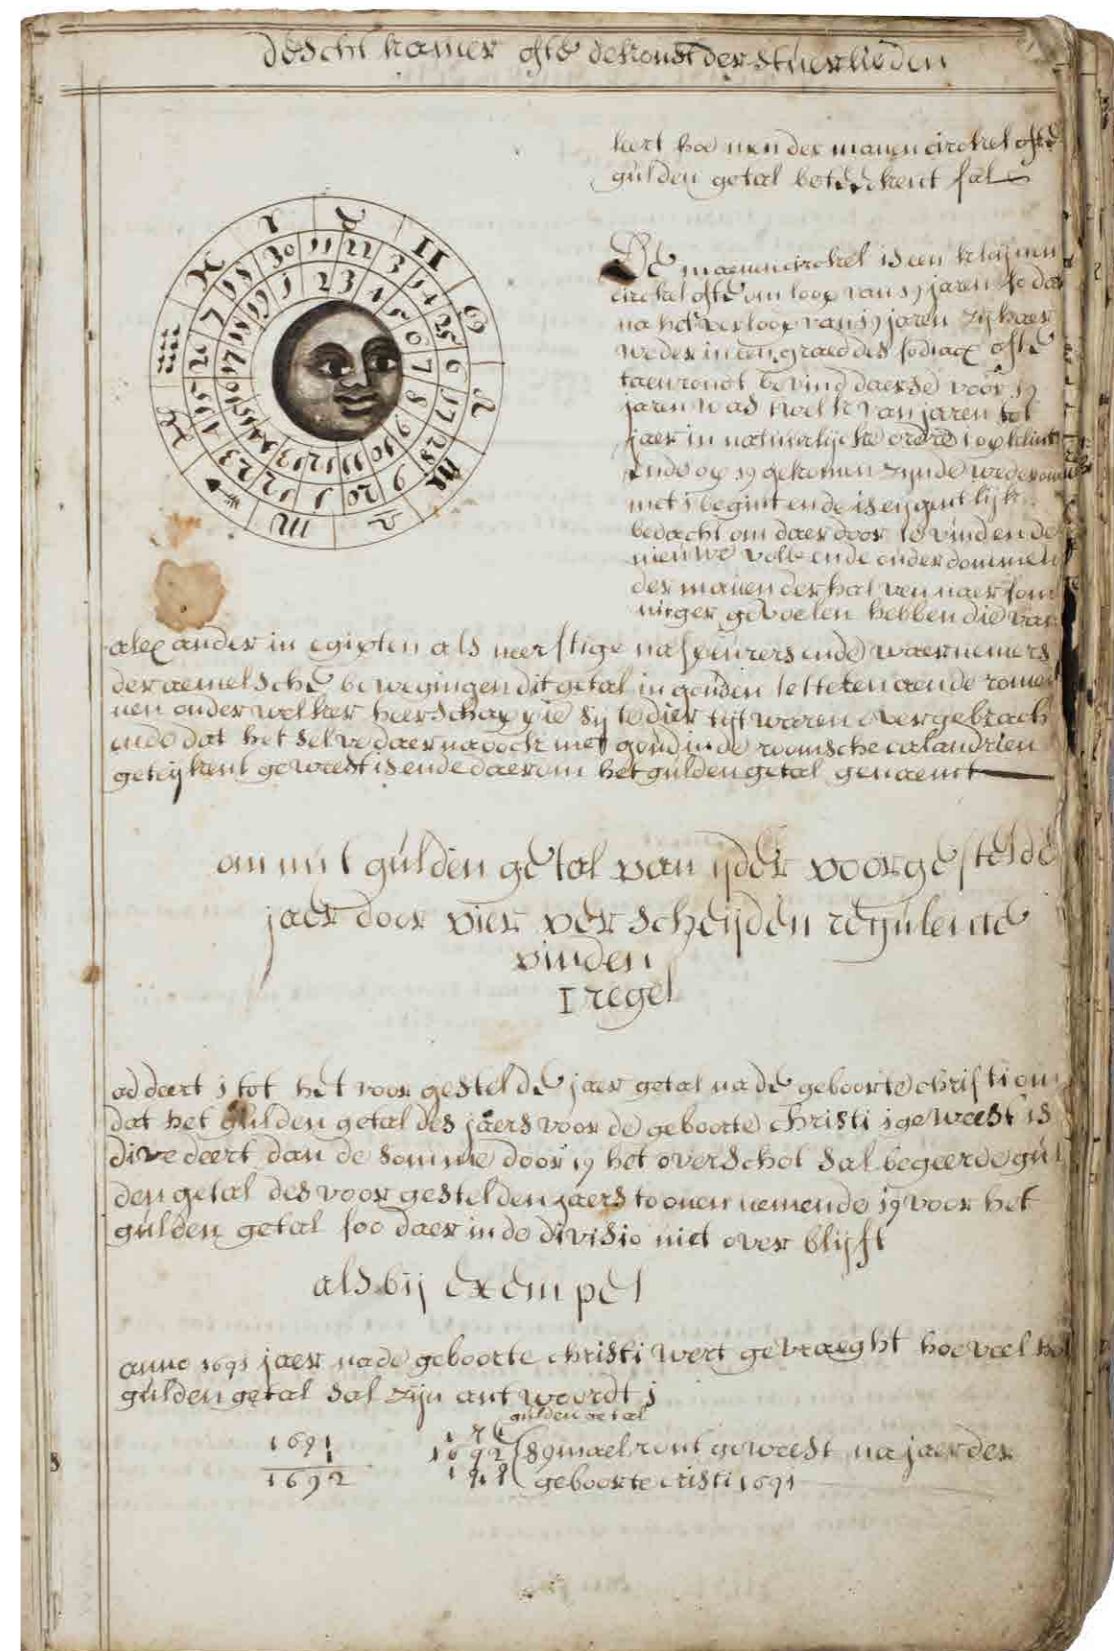 de schtkamer ofte dekonst der stuerlieden
leert hoe men der manen circkel ofte
gulden getal
De maenencirckel is een klijnen
circkel ofte om loop van 19 jaren so dat
na het verloop van 19 jaren zij haer
weder in een graed des sodiacx ofte
taenrondt bevind daerse voor 19
jaren was welk van jaren tot
jaer in natuerlijcke ordre opklimt
ende op 19 gekomen zijnde wederom
met 1 begint ende is eijgentlijk
bedacht om daer door te vinden de
nieuwe volle ende ouderdommen
der manen der hal ven naer som
niger gevoelen hebben die van
alexander in egipten als neerstige naspeurers ende waernemers
der aemelsche bewegingen dit getal in gouden letteren aende romei
nen onder welker heerschappie sij te dier tijt waren overgebrach
ende dat het selve daer na oock met goud in de roomsche calandrien
geteijkent geweest is ende daerom het gulden getal genaemt
om int gulden getal van ijder voorgestelde
jaer door vier verscheijden regulen te
vinden
I regel
addeert 1 tot het voor gestelde jaer getal na de geboorte christi om
dat het gulden getal des jaers voor de geboorte christi 1 geweest is
divedeert dan de somme door 19 het overschot sal begeerde gul
den getal des voor gestelden jaers toonen nemende 19 voor het
gulden getal soo daer in de divisio niet over blijft
als bij exempel
anno 1691 jaer na de geboorte christi wert gevraeght hoe veel het
gulden getal sal zijn antwoordt 1
gulden getal
1691
1
1692
1692 (89 mael ront geweest na jaer der
geboorte cristi 1691
1 2 3 4 5 6 7 8 9 10 11 12 13 14 15 16 17 18 19
11 22 3 14 25 6 17 28 9 20 1 12 23 4 15 26 7 18 30